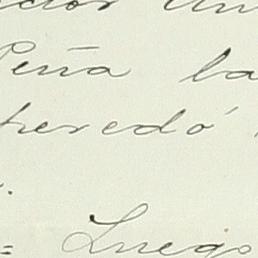 Peña ba
heredó
= Luego